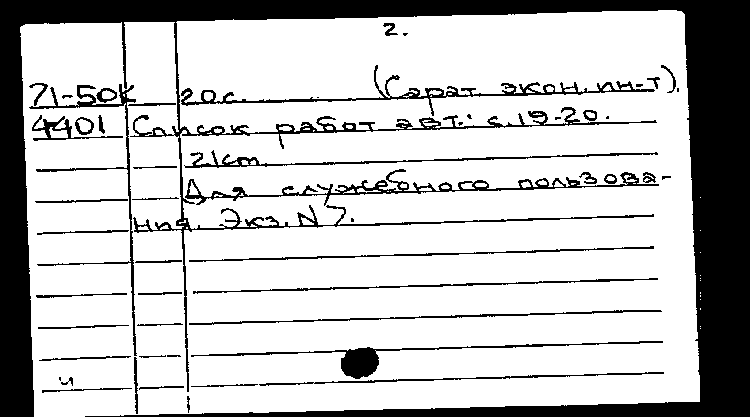 2.
71-50К 20с. (Сарат. экон. ин-т).
4401 Список работ авт.: с. 19-20.
21cm.
Для служебного пользова-
ния. Экз. N 7.
ч